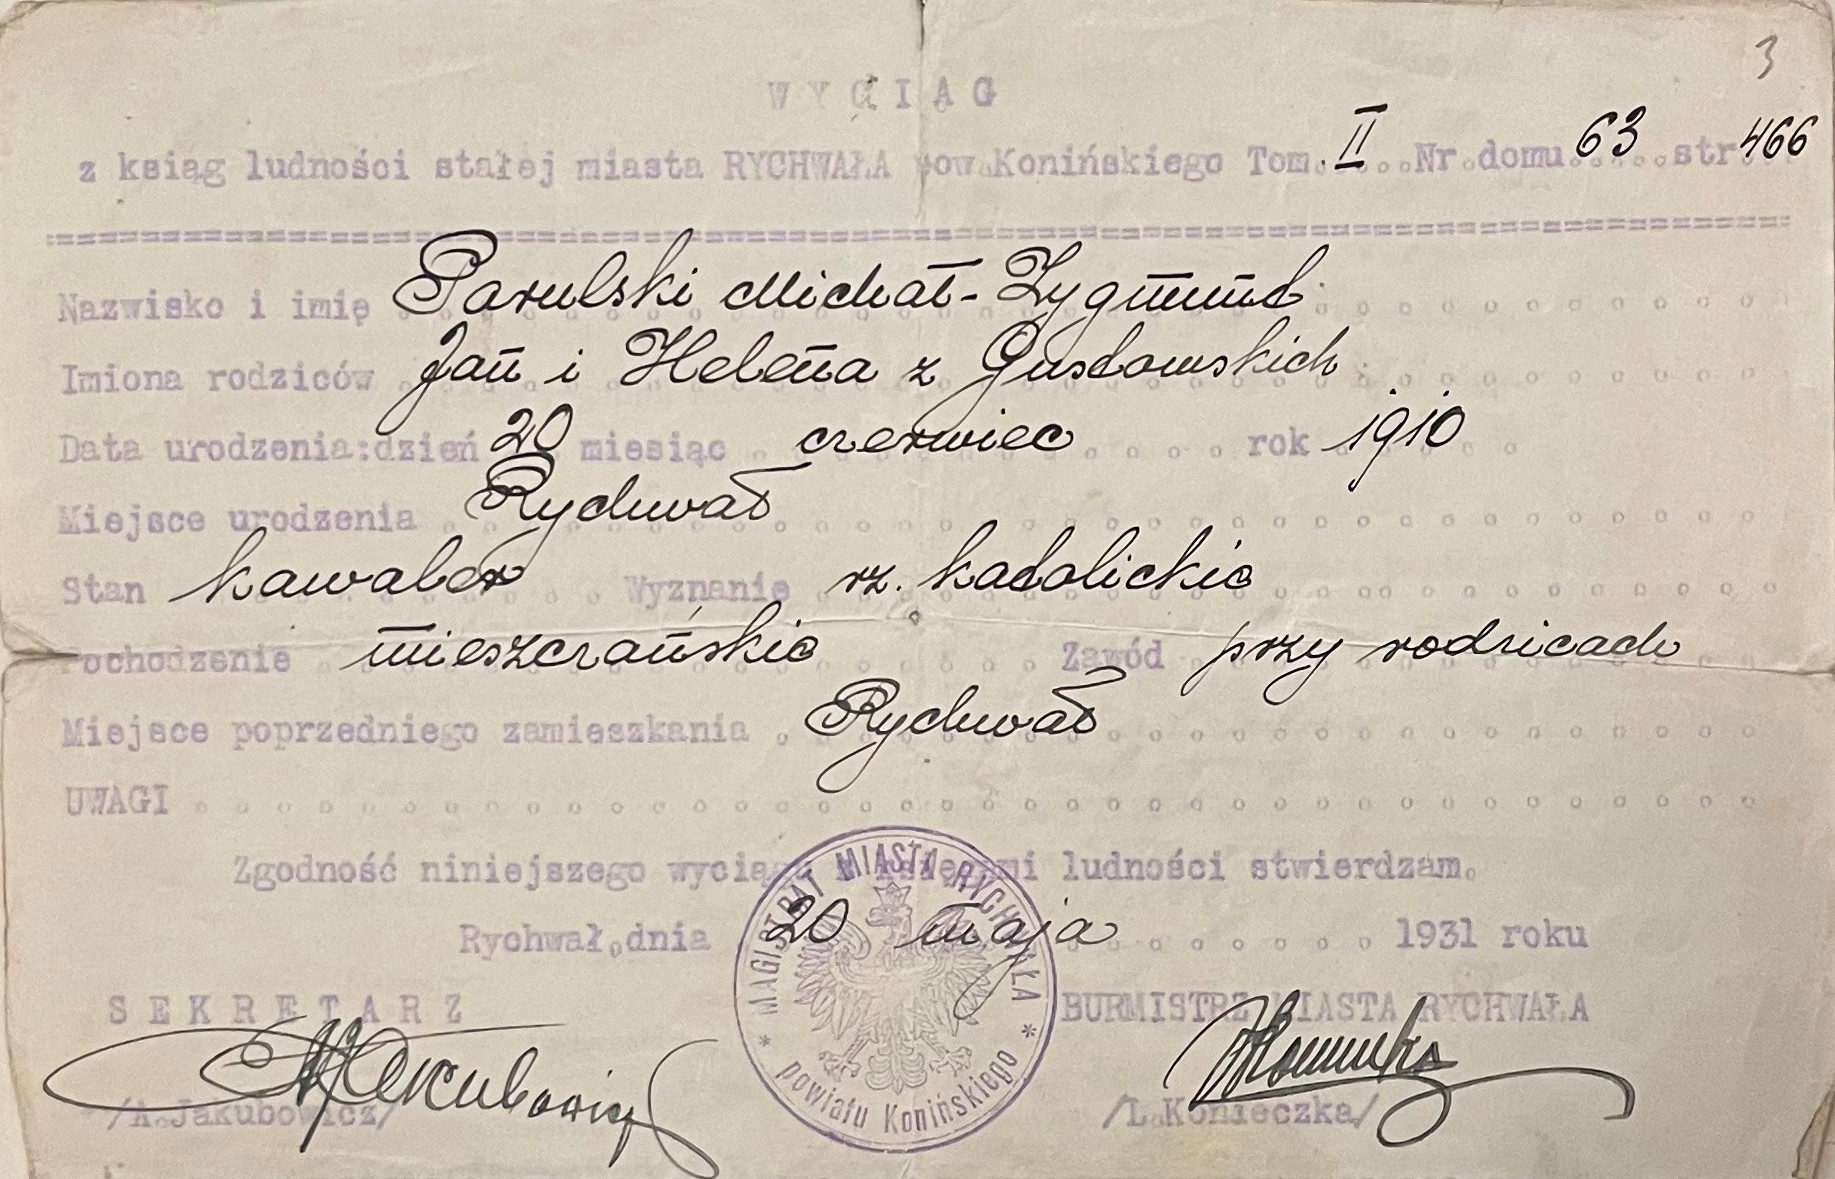 3
WYCIĄG
z ksiąg ludności stałej miasta RYCHWAŁA pow.Konińskiego Tom. II ...Nr.domu 63 ....str 466
Nazwisko i imię Parulski Michał-Zygmunt
Imiona rodziców Jan i Helena z Gustowskich
Data urodzenia:dzień 20 miesiąc czerwiec rok 1910
Miejsce urodzenia Rychwał
Stan kawaler Wyznanie rz. katolickie
Pochodzenie mieszczańskie Zawód przy rodzicach
Miejsce poprzedniego zamieszkania Rychwał
UWAGI
Zgodność niniejszego wyciągu z księgami ludności stwierdzam.
Rychwał.dnia 20 maja 1931 roku
SEKRETARZ BURMISTRZ MIASTA RYCHWAŁA
AJakubowicz
/A.Jakubowicz/ /L.Konieczka/
* MAGISTRAT MIASTA RYCHWAŁA *
powiatu Konińskiego